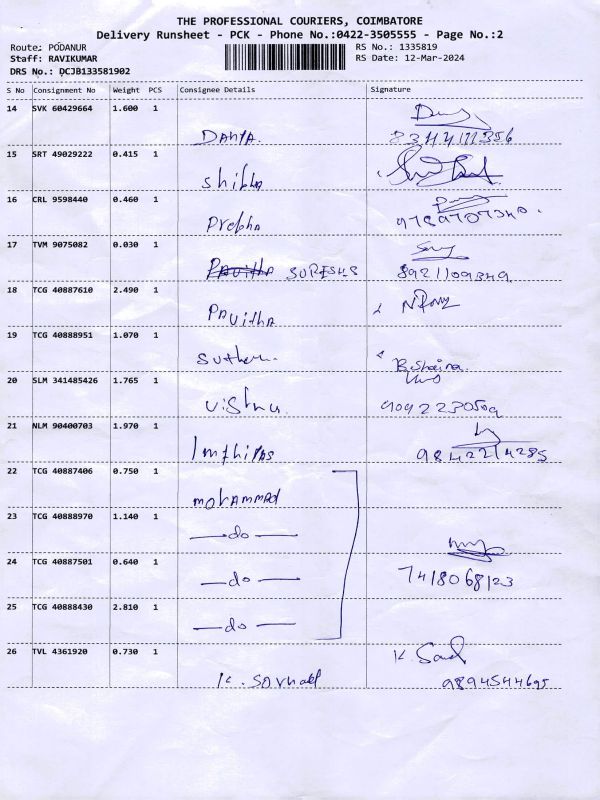 THE PROFESSIONAL COURIERS, COIMBATORE
Delivery Runsheet - PCK - Phone No.:0422-3505555 - Page No.:2
Route: PODANUR
RS No.: 1335819
Staff: RAVIKUMAR
RS Date: 12-Mar-2024
DRS No.: DCJB133581902
S No Consignment No Weight PCS Consignee Details Signature
14 SVK 60429664 1.600 1
15 SRT 49029222 0.415 1
shibha
16 CRL 9598440 0.460 1
Prebha
17 TVM 9075082 0.030 1
SURESHS 8921109349
18 TCG 40887610 2.490 1
PAVithA
19 TCG 40888951 1.070 1
B.Shaina
20 SLM 341485426 1.765 1
Vishnu
21 NLM 90400703 1.970 1
9842214285
22 TCG 40887406 0.750 1
mohAMMAd
23 TCG 40888970 1.140 1
— do —
24 TCG 40887501 0.640 1
— do — 7418068123
25 TCG 40888430 2.810 1
— do —
26 TVL 4361920 0.730 1
9894544695